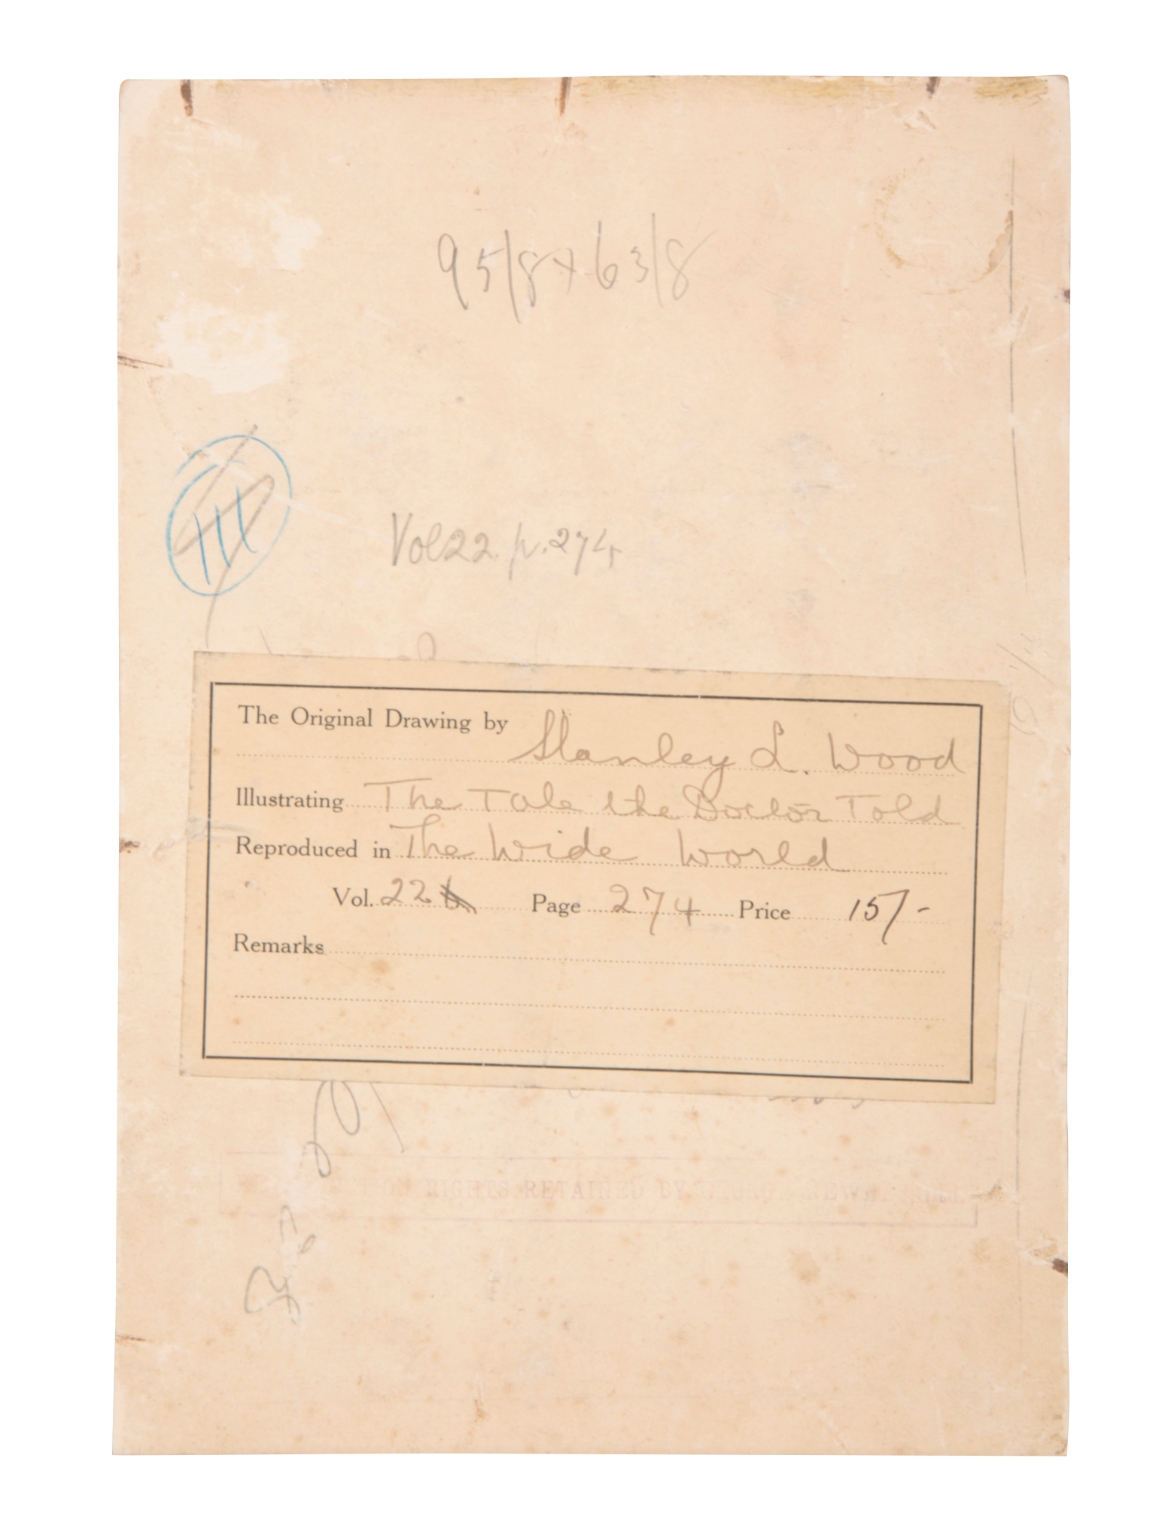 95/8 x 63/8
111
Vol 22. p. 274
The Original Drawing by Stanley L. Wood
Illustrating The Tale the Doctor Told
Reproduced in The Wide World
Vol. 22 Page 274 Price 15/-
Remarks
RIGHTS RETAINED BY